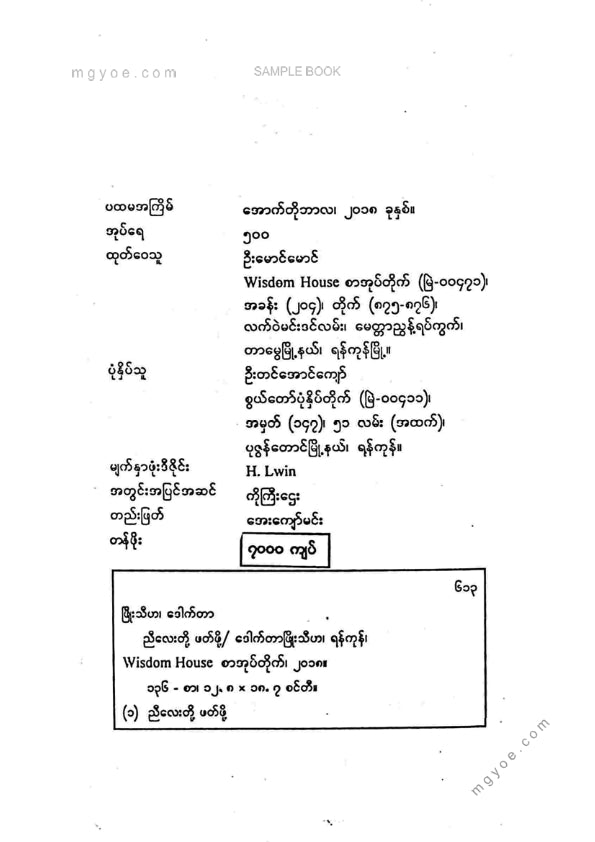 mgyoe.com SAMPLE BOOK
ပထမအကြိမ် အောက်တိုဘာလ၊ ၂၀၁၈ ခုနှစ်။
အုပ်ရေ ၅၀၀
ထုတ်ဝေသူ ဦးမောင်မောင်
Wisdom House စာအုပ်တိုက် (မြဲ-၀၀၄၇၁)၊
အခန်း (၂၀၄)၊ တိုက် (၈၇၅-၈၇၆)၊
လက်ဝဲမင်းဒင်လမ်း၊ မေတ္တာညွန့်ရပ်ကွက်၊
တာမွေမြို့နယ်၊ ရန်ကုန်မြို့။
ပုံနှိပ်သူ ဦးတင်အောင်ကျော်
စွယ်တော်ပုံနှိပ်တိုက် (မြဲ-၀၀၄၁၁)၊
အမှတ် (၁၄၇)၊ ၅၁ လမ်း (အထက်)၊
ပုဇွန်တောင်မြို့နယ်၊ ရန်ကုန်။
မျက်နှာဖုံးဒီဇိုင်း H. Lwin
အတွင်းအပြင်အဆင် ကိုကြီးဌေး
တည်းဖြတ် အေးကျော်မင်း
တန်ဖိုး ၇၀၀၀ ကျပ်
၆၁၃
ဖြိုးသီဟ၊ ဒေါက်တာ
ညီလေးတို့ ဖတ်ဖို့/ ဒေါက်တာဖြိုးသီဟ၊ ရန်ကုန်၊
Wisdom House စာအုပ်တိုက်၊ ၂၀၁၈။
၁၃၆ - စာ၊ ၁၂. ၈ × ၁၈. ၇ စင်တီ။
(၁) ညီလေးတို့ ဖတ်ဖို့
mgyoe.com